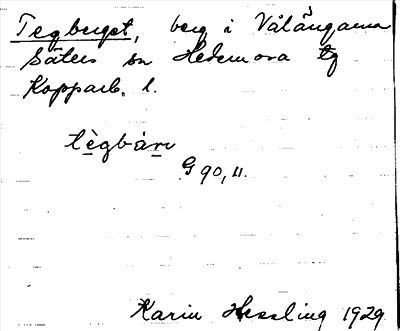 Tegberget, berg i Vålångarna
Säters sn Hedemora tg
Kopparb. l.
tègbàrı
G 90, 11.
Karin Hessling 1929